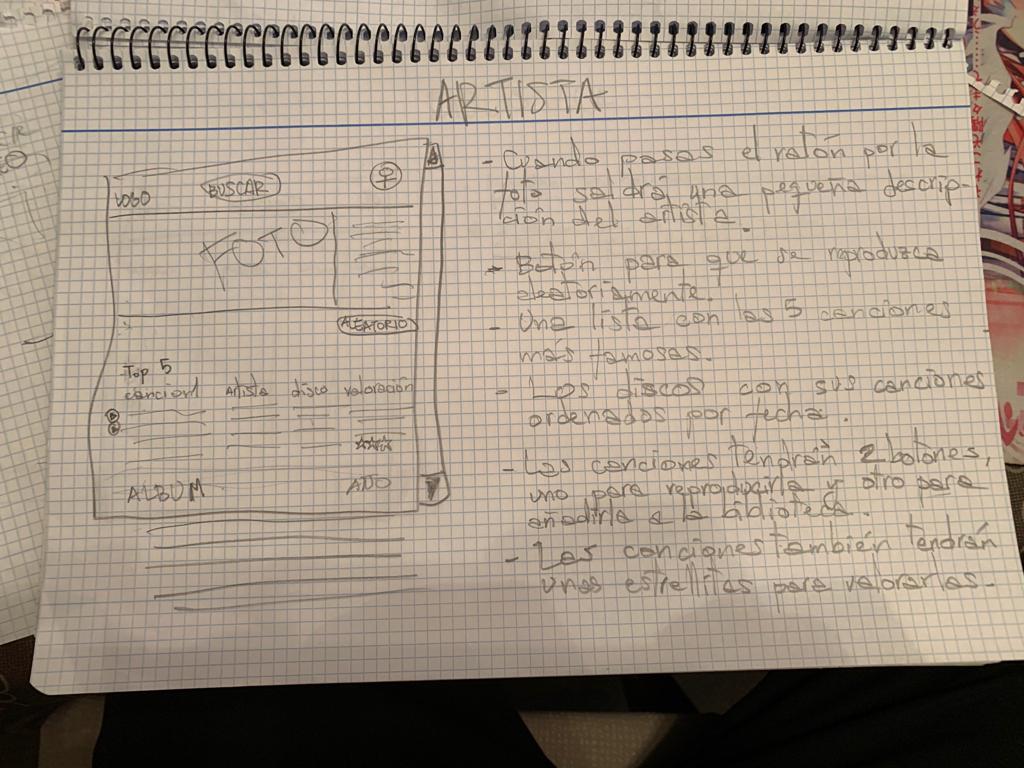 ARTISTA
LOGO
BUSCAR
FOTO
ALEATORIO
Top 5
canción Artista disco valoración
ALBUM AÑO
- Cuando pasas el ratón por la
foto saldrá una pequeña descrip-
ción del artista.
- Botón para que se reproduzca
aleatoriamente.
- Una lista con las 5 canciones
más famosas.
- Los discos con sus canciones
ordenados por fecha.
- Las canciones tendrán 2 botones,
uno para reproducirla y otro para
añadirla a la biblioteca.
- Las canciones también tendrán
unas estrellitas para valorarlas.